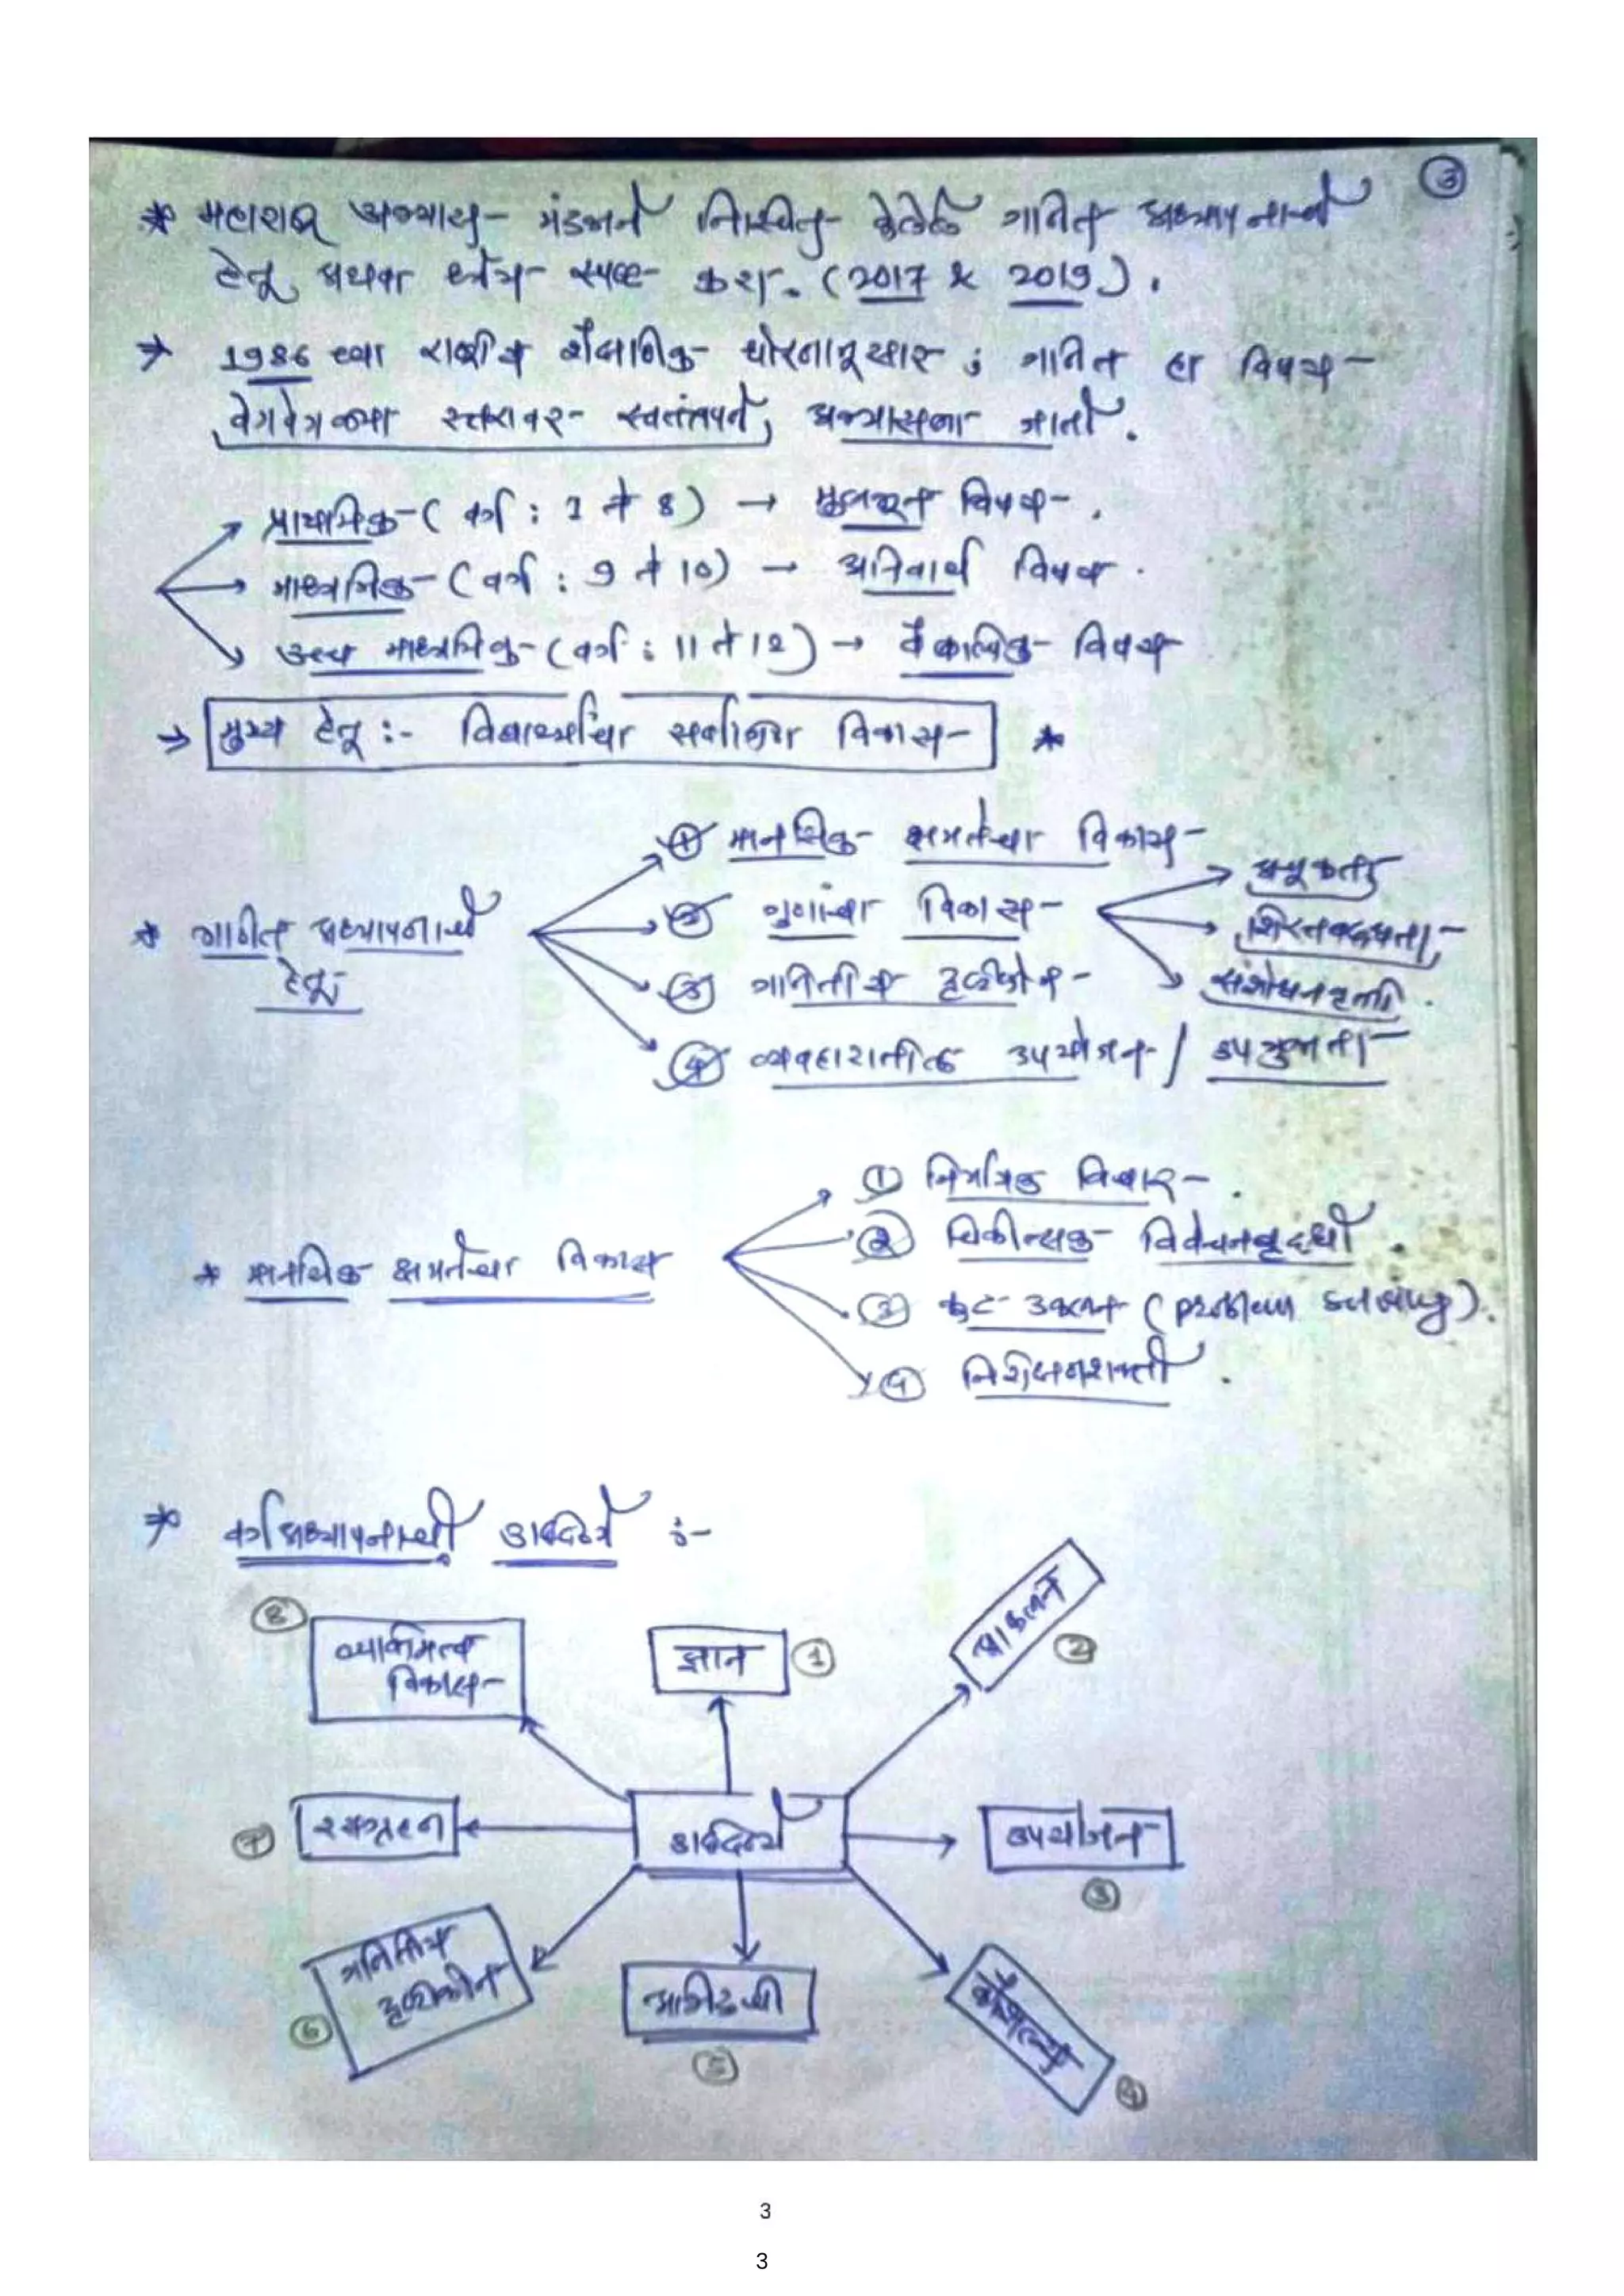 ③
* महाराष्ट्र अभ्यास मंडळाने निश्चित केलेले गणित अध्यापनाचे
हेतू अथवा ध्येय स्पष्ट करा. (2017 & 2019).
→ 1986 च्या राष्ट्रीय शैक्षणिक धोरणानुसार; गणित हा विषय
वेगवेगळ्या स्तरावर स्वतंत्रपणे अभ्यासला जातो.
प्राथमिक (वर्ग : 1 ते 8) → मुलभूत विषय.
माध्यमिक (वर्ग : 9 ते 10) → अनिवार्य विषय.
उच्च माध्यमिक (वर्ग : 11 ते 12) → वैकल्पिक विषय
→ मुख्य हेतू :- विद्यार्थ्यांचा सर्वांगीण विकास *
① मानसिक क्षमतेचा विकास
* गणित अध्यापनाचे हेतू
② गुणांचा विकास
अचूकता
शिस्तबद्धता
संशोधनवृत्ती.
③ गणितीय दृष्टीकोन
④ व्यवहारातील उपयोजन / उपयुक्तता
* मानसिक क्षमतेचा विकास
① विचार.
② चिकीत्सक विवेचनबुद्धी.
③ कुट उकलन (problem solving).
④ निरीक्षणशक्ती.
* वर्गअध्यापनाची उद्दिष्टे :-
⑧ व्यक्तिमत्व
विकास
ज्ञान ①
आकलन ②
⑦ रसग्रहण
उद्दिष्ट्ये
उपयोजन ③
⑥ गणितीय
दृष्टीकोन
अभिरुची ⑤
कौशल्य ④
3
3